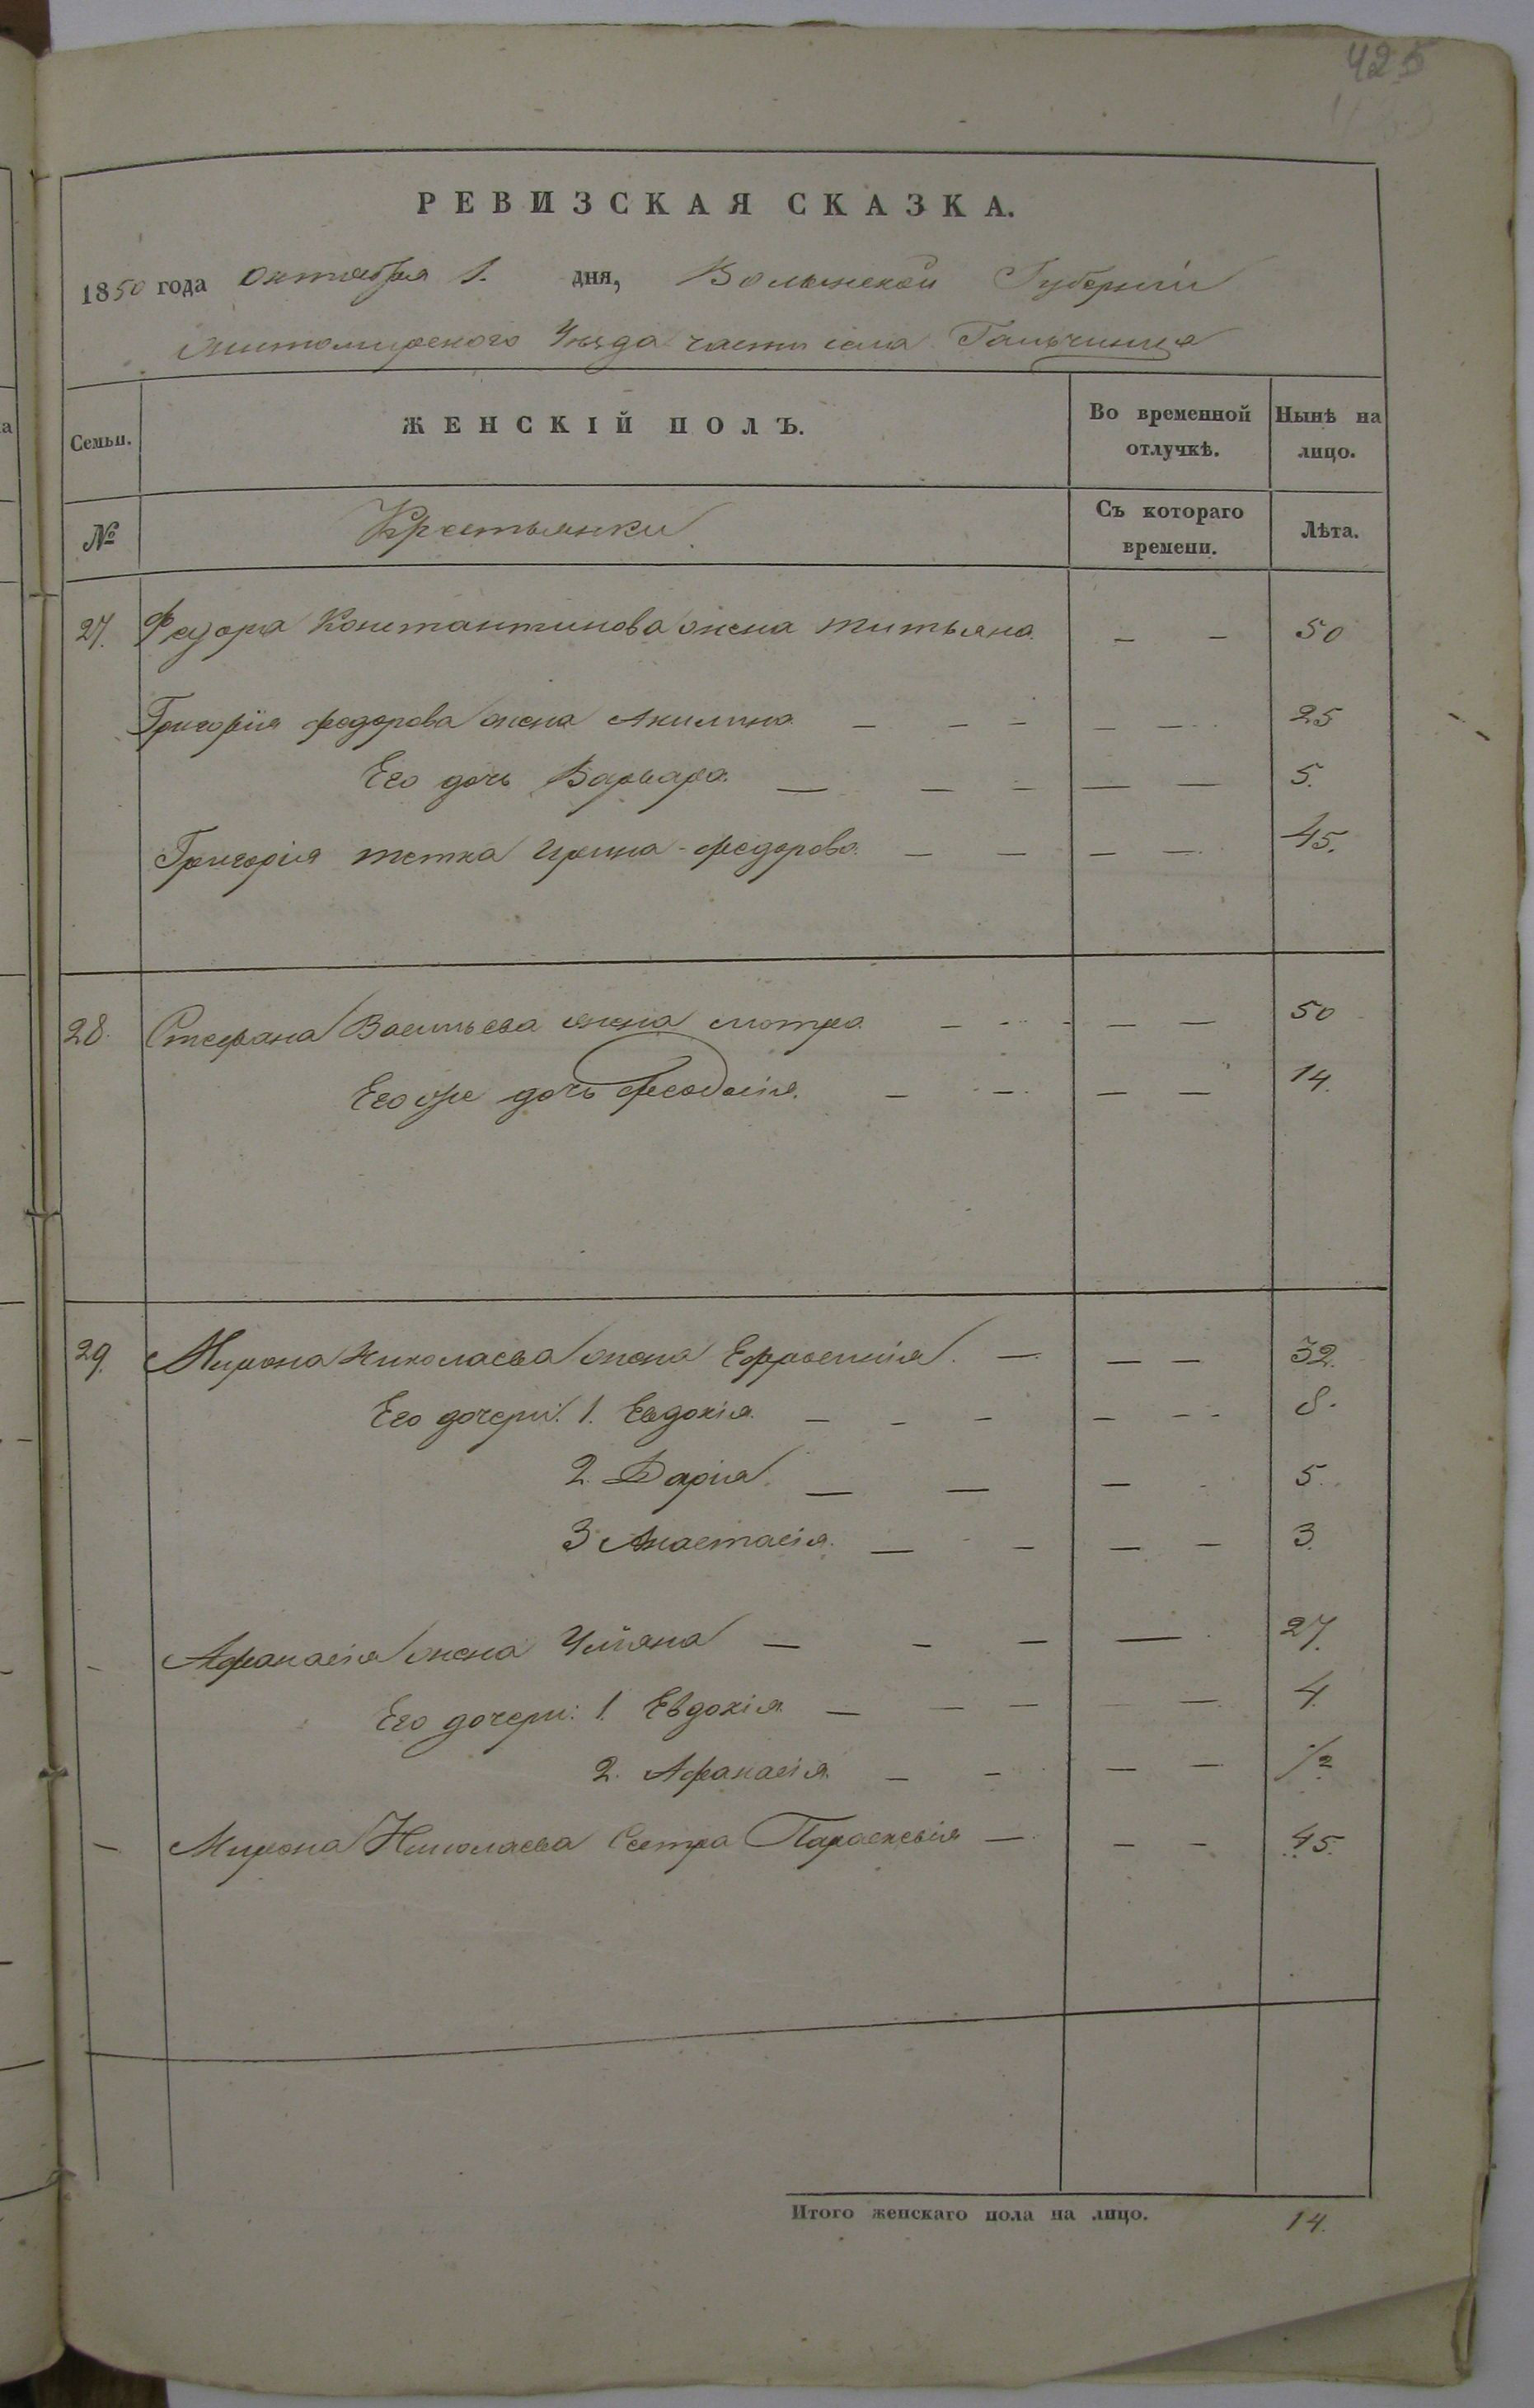 425
РЕВИЗСКАЯ СКАЗКА.
1850 года октября 1. дня, Волынской Губерніи
Житомирского Уѣзда части села Гальчинца
Семьи. ЖЕНСКІЙ ПОЛЪ. Во временной отлучкѣ. Нынѣ на лицо.
№ Крестьянки Съ котораго времени. Лѣта.
27. Федора Константинова жена Титьяна - - 50
Григорія Федорова жена Акилина - - - - - 25
Его дочь Варвара - - - - - 5.
Григорія тетка Ирина Федорова - - - - 45.
28. Стефана Васильева жена Мотра - - - - - 50
Его же дочь Феодосія. - - - - 14.
29. Мирона Николаева жена Ефросинія. - - - 32.
Его дочери: 1. Евдокія. - - - - - - 8.
2. Дарія - - - - 5.
3 Анастасія. - - - - 3.
- Афанасія жена Уліяна - - - - 27.
Его дочери: 1. Евдокія. - - - - - 4.
2. Афанасія. - - - - 1/2
- Мирона Николаева Сестра Параскевія - - - 45.
Итого женскаго пола на лицо. 14.